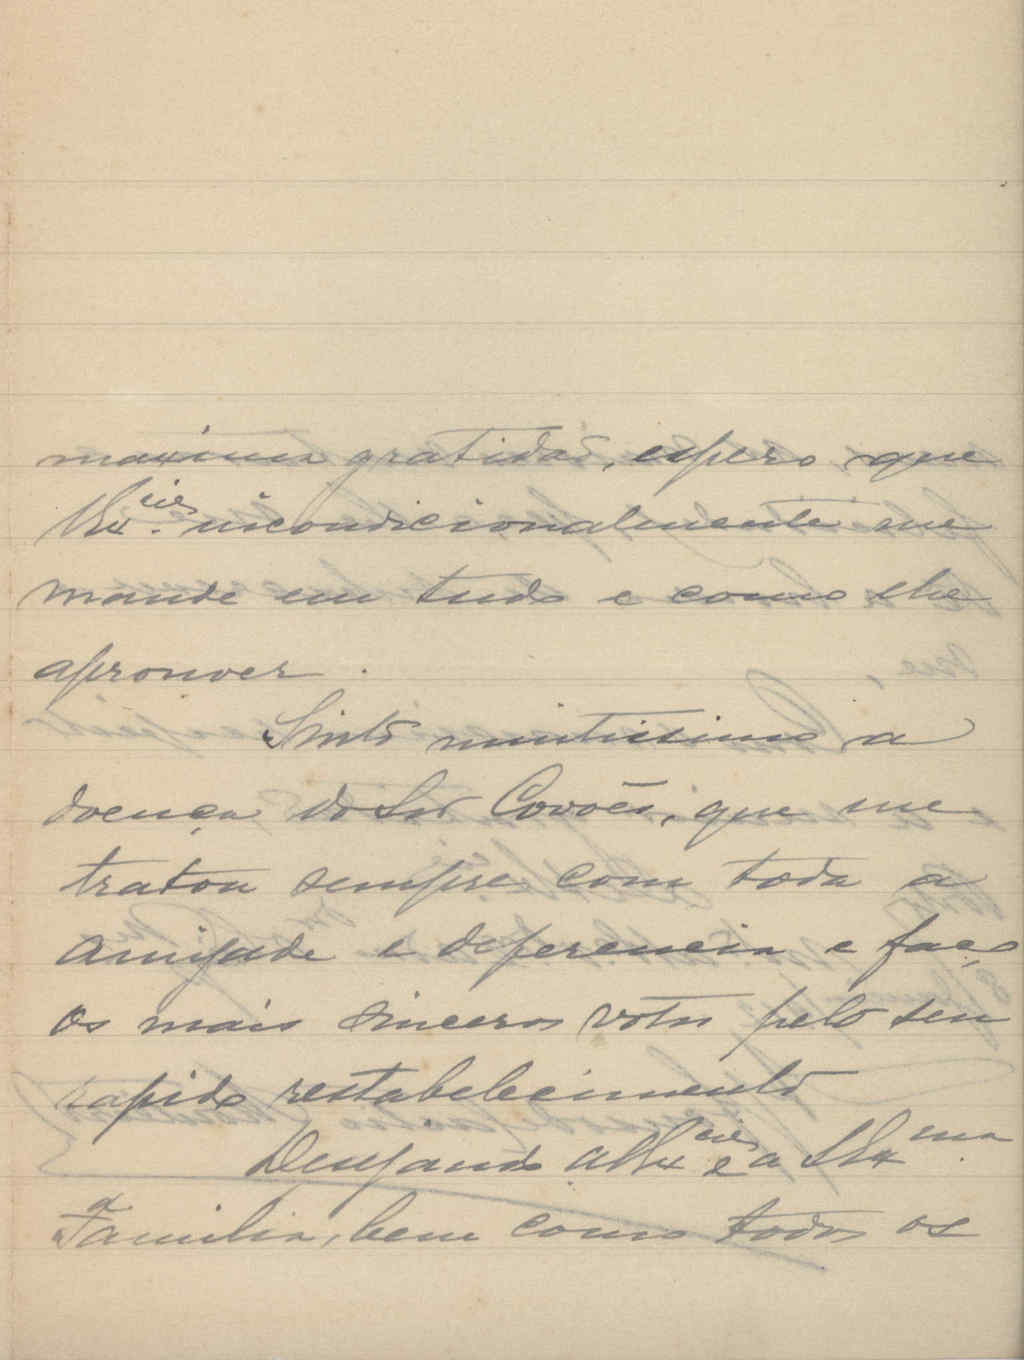 maxima gratidão, espero que
V. Ex.cia incondicionalmente me
mande em tudo e como lhe
aprouver.
Sinto muitissimo a
doença do Snr Covões, que me
tratou sempre com toda a
amisade e deferencia e faço
os mais sinceros votos pelo seu
rapido restabelecimento
Desejando a V. Ex.cia e a S. Ex.ma
Familia, bem como todos os